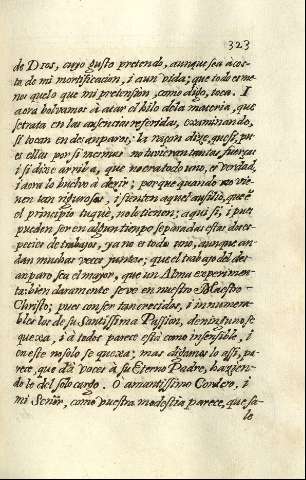 323
de Dios, cuyo gusto pretendo, aunque sea à cos-
ta de mi mortificacion, i aun vida; que todo es me-
nos quelo que mi pretension, como digo, toca. I
aora bolvamos à atar el hilo dela materia, que
se trata en las ausencias referidas, examinando,
si tocan en desamparos; la raçon dize que si, pu-
es ellas por si mismas no tuvieran tantas fuerças
i si dize arriba, que no era todo uno, es verdad,
i aora lo buelvo à dezir; porque quando no vie-
nen tan rigurosas, i sienten aquel ausilio, que è
el principio tuquè, no le tienen; aqui si, i pues
pueden ser en algun tiempo separadas estas dos es-
pecies de trabajos, ya no es todo uno, aunque an-
dan muchas veces juntos; que el trabajo del des-
amparo, sea el mayor, que un Alma experimen-
ta: bien claramente se ve en nuestro Maestro
Christo; pues con ser tan crecidos, i innumera-
bles los de su Santissima Passion, de ninguno se
quexa, i à todos parece està como insensible, i
en este no solo se quexa; mas digamos lo assi, pa-
rece, que dà voces à su Eterno Padre, hazien-
do le del solo cargo. O amantissimo Cordero, i
mi Señor, como vuestra modestia parece, que sa-
le